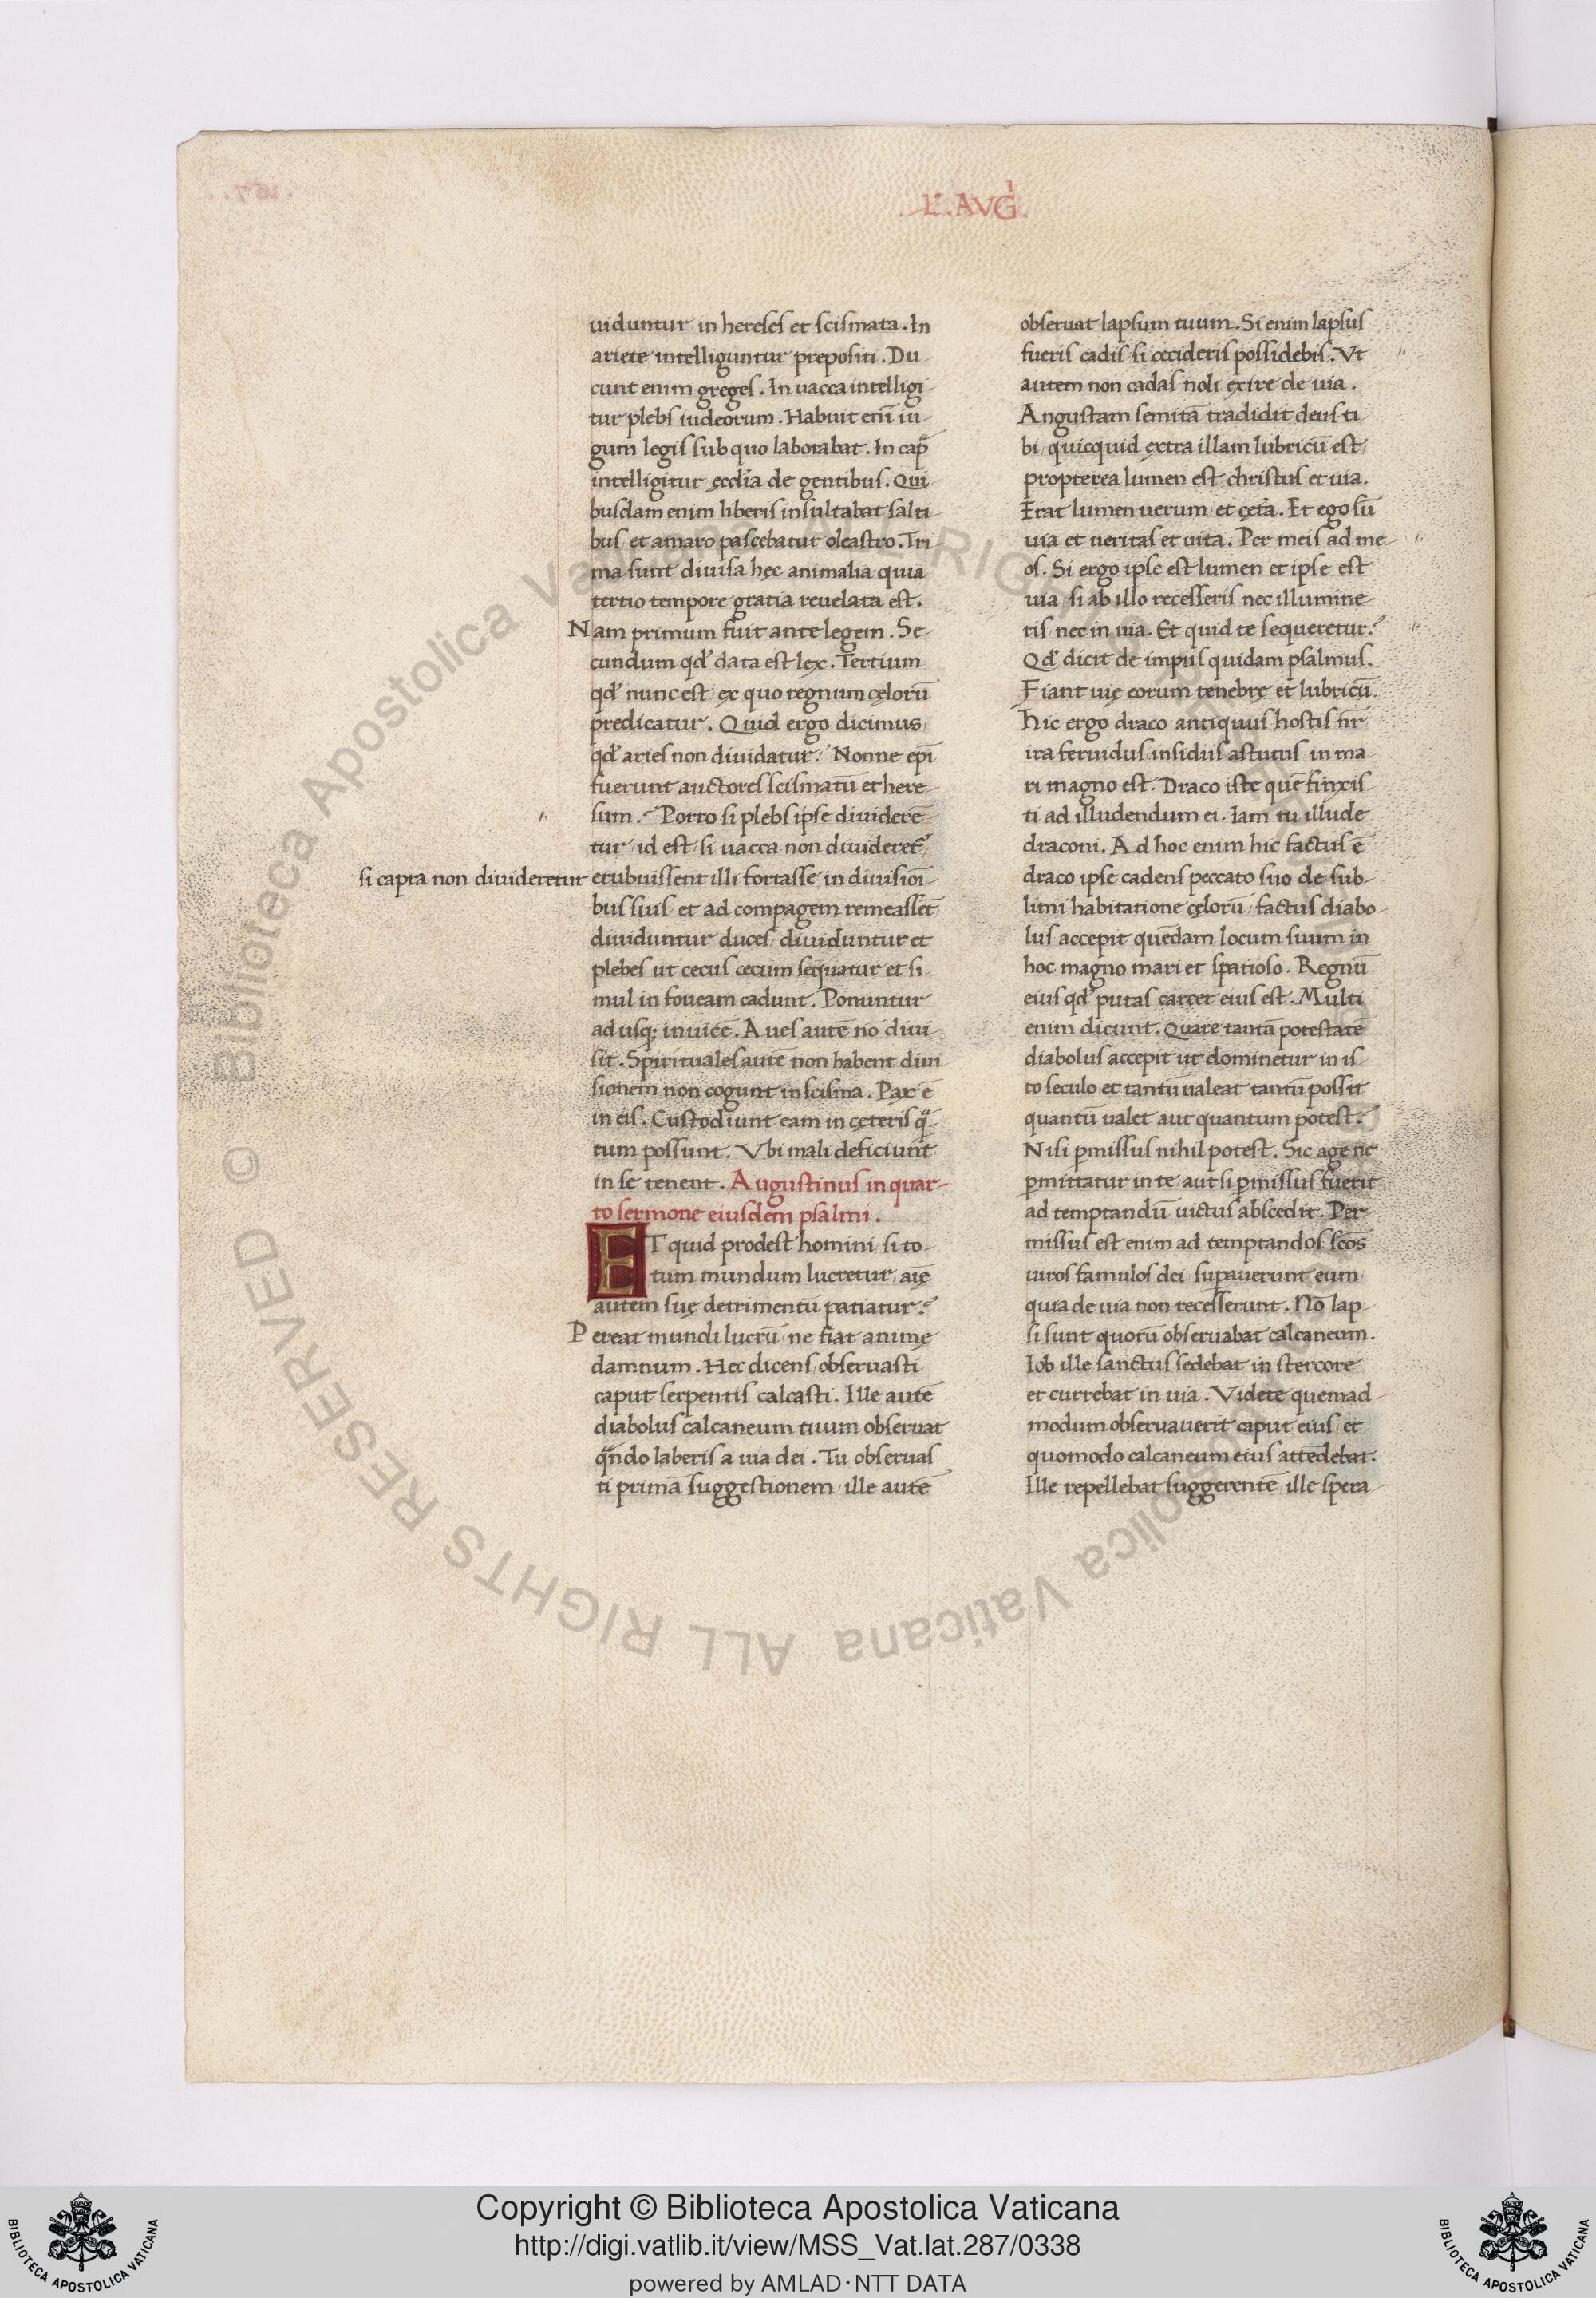 .L̄.AVĠ.
uiduntur in hereses et scismata. In
ariete intelliguntur prepositi. Du
cunt enim greges. In uacca intelligi
tur plebs iudeorum. Habuit enī iu
gum legis sub quo laborabat. In cap̄
intelligitur ęccl̄ia de gentibus. Qui
busdam enim liberis insultabat salti
bus et amaro pascebatur oleastro. Tri
ma sunt diuisa hęc animalia quia
tertio tempore gratia reuelata est.
Nam primum fuit ante legem. Se
cundum qd' data est lex. Tertium
qd' nunc est ex quo regnum cęlorū
predicatur. Quid ergo dicimus,
qd' aries non diuidatur? Nonne epī
fuerunt auctores scismatū et here
sum? Porro si plebs ipse diuidere
tur, id est, si uacca non divideret̄,
si capra non diuideretur
erubuissent illi fortasse in diuisioī
bus suis, et ad compagem remeassēt,
diuiduntur duces, diuiduntur et
plebes ut cecus cecum sequatur et si
mul in foueam cadunt. Ponuntur
adusq; inuicē. Aues autē nō diui
sit. Spirituales autē non habent diui
sionem non cogunt in scisma. Pax ē
in eis. Custodiunt eam in cęteris q̄
tum possunt. Vbi mali deficiunt
in se tenent. Augustinus in quar-
to sermone eiusdem psalmi.
ET quid prodest homini, si to-
tum mundum lucretur, aīę
autem suę detrimentū patiatur?
Pereat mundi lucrū, ne fiat animę
damnum. Hec dicens, obseruasti
caput serpentis calcasti. Ille autē
diabolus calcaneum tuum obseruat
q̄ndo laberis a uia dei. Tu obseruas
ti primā suggestionem, ille autē
obseruat lapsum tuum. Si enim lapsus
fueris cadis si cecideris possidebis. Vt
autem non cadas noli exire de uia.
Angustam semitā tradidit deus ti
bi, quicquid extra illam lubricū est,
propterea lumen est christus et uia.
Erat lumen uerum, et cet̄a. Et ego sū
uia et ueritas et uita. Per meis ad me
os. Si ergo ipse est lumen et ipse est
uia, si ab illo recesseris nec illumine
ris, nec in uia. Et quid te sequeretur?
Qd' dicit de impiis quidam psalmus.
Fiant uię eorum tenebrę et lubricū.
Hic ergo draco antiquus hostis n̄r
ira feruidus, insidiis astutus, in ma
ri magno est. Draco iste quē finxis
ti ad illudendum ei. Iam tu illude
draconi. Ad hoc enim hic factus ē
draco ipse cadens peccato suo de sub-
limi habitatione cęlorū, factus diabo-
lus accepit quēdam locum suum in
hoc magno mari et spatioso. Regnū
eius qd' putas carcer eius est. Multi
enim dicunt. Quare tantā potestatē
diabolus accepit ut dominetur in is-
to seculo et tantū ualeat tantū possit
quantū ualet aut quantum potest?
Nisi p̄missus nihil potest. Sic age ne
p̄mittatur in te, aut si p̄missus fuerit
ad temptandū uictus abscedit. Per
missus est enim ad temptandos sc̄os
uiros famulos dei, sup̄auerunt eum,
quia de uia non recesserunt. Nō lap-
si sunt quorū obseruabat calcaneum.
Iob ille sanctus sedebat in stercore
et currebat in uia. Videte quemad-
modum obseruauerit caput eius, et
quomodo calcaneum eius attēdebat.
Ille repellebat suggerentē, ille spera-
© Biblioteca Apostolica Vaticana ALL RIGHTS RESERVED
Copyright © Biblioteca Apostolica Vaticana
http://digi.vatlib.it/view/MSS_Vat.lat.287/0338
powered by AMLAD·NTT DATA
BIBLIOTECA APOSTOLICA VATICANA
BIBLIOTECA APOSTOLICA VATICANA